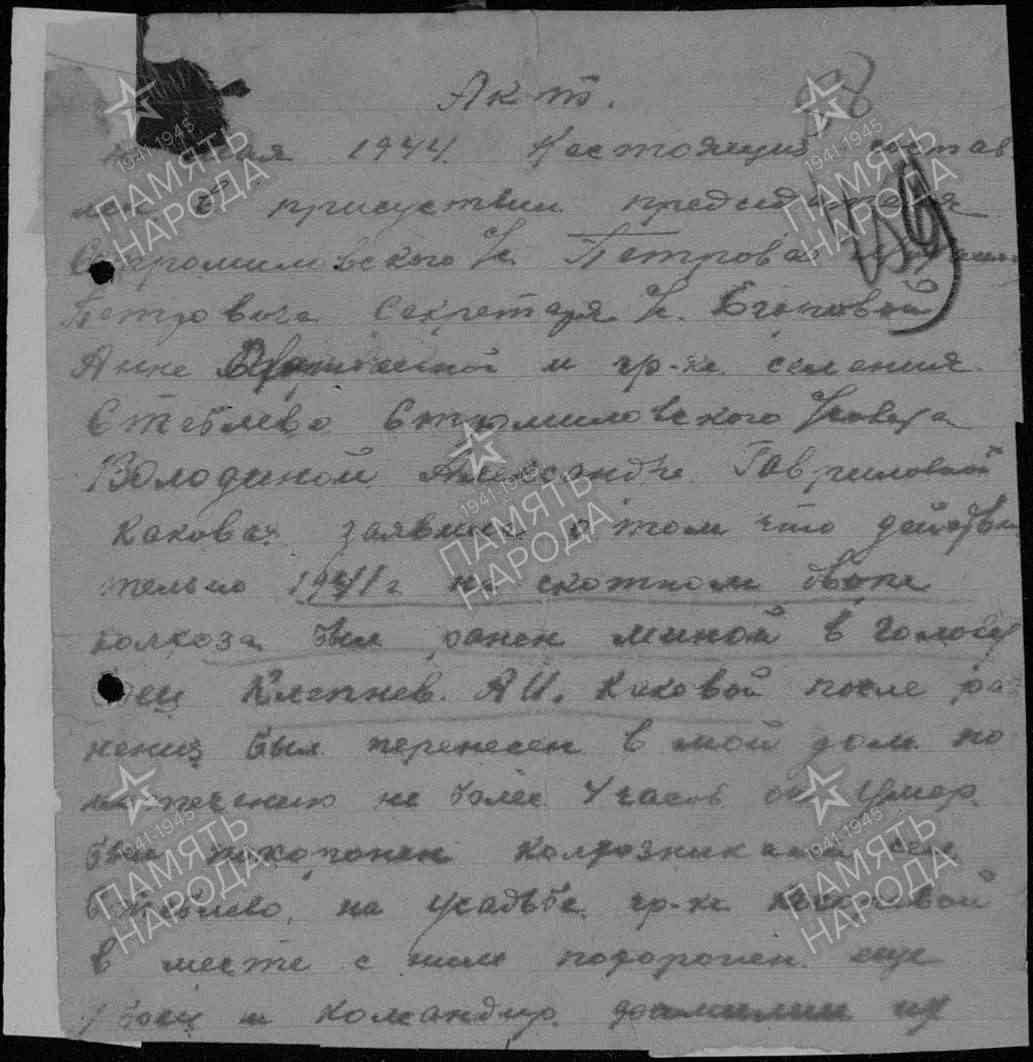 Акт.
мая 1944 Настоящий состав
лен в присуствии председателя
Стромиловского с/с. Петрова
Петровича секретаря с/с.
Анне и гр-ки селения
Стеблево Стромиловского с/совета
Володиной Александре Гавриловной
Какова заявила о том что действи
тельно 1941 г на скотном дворе
колхоза был ранен миной в голову
боец Клепнев. А И. Каковой после ра
нения был перенесен в мой дом по
истечению не более 4 часов он умер.
был похоронен колхозниками сел.
Стеблево, на усадьбе гр-ки
в месте с ним похоронен еще
1 боец и командир фамилии их